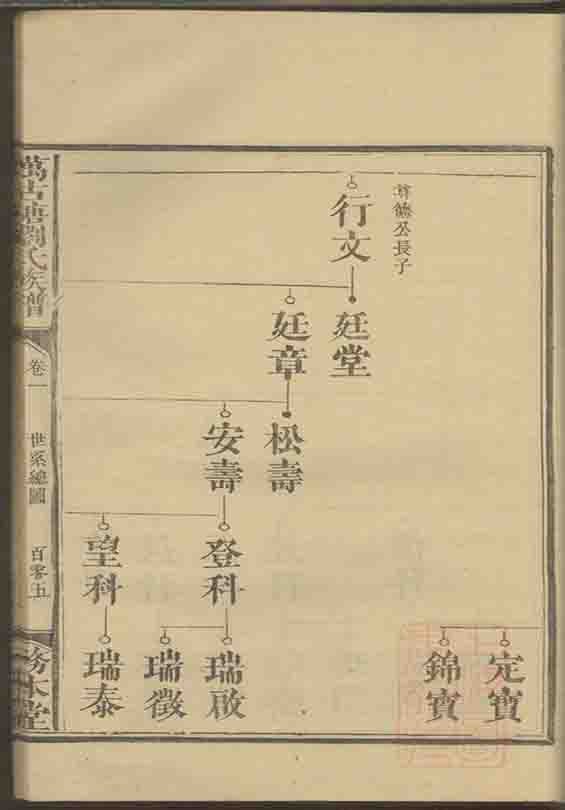 尊德公長子
行文
廷堂
廷章
松壽
安壽
登科
望科
定寶
錦寶
瑞啟
瑞徵
瑞泰
萬古塘劉氏族譜
卷一
世系總圖
百零五
務本堂